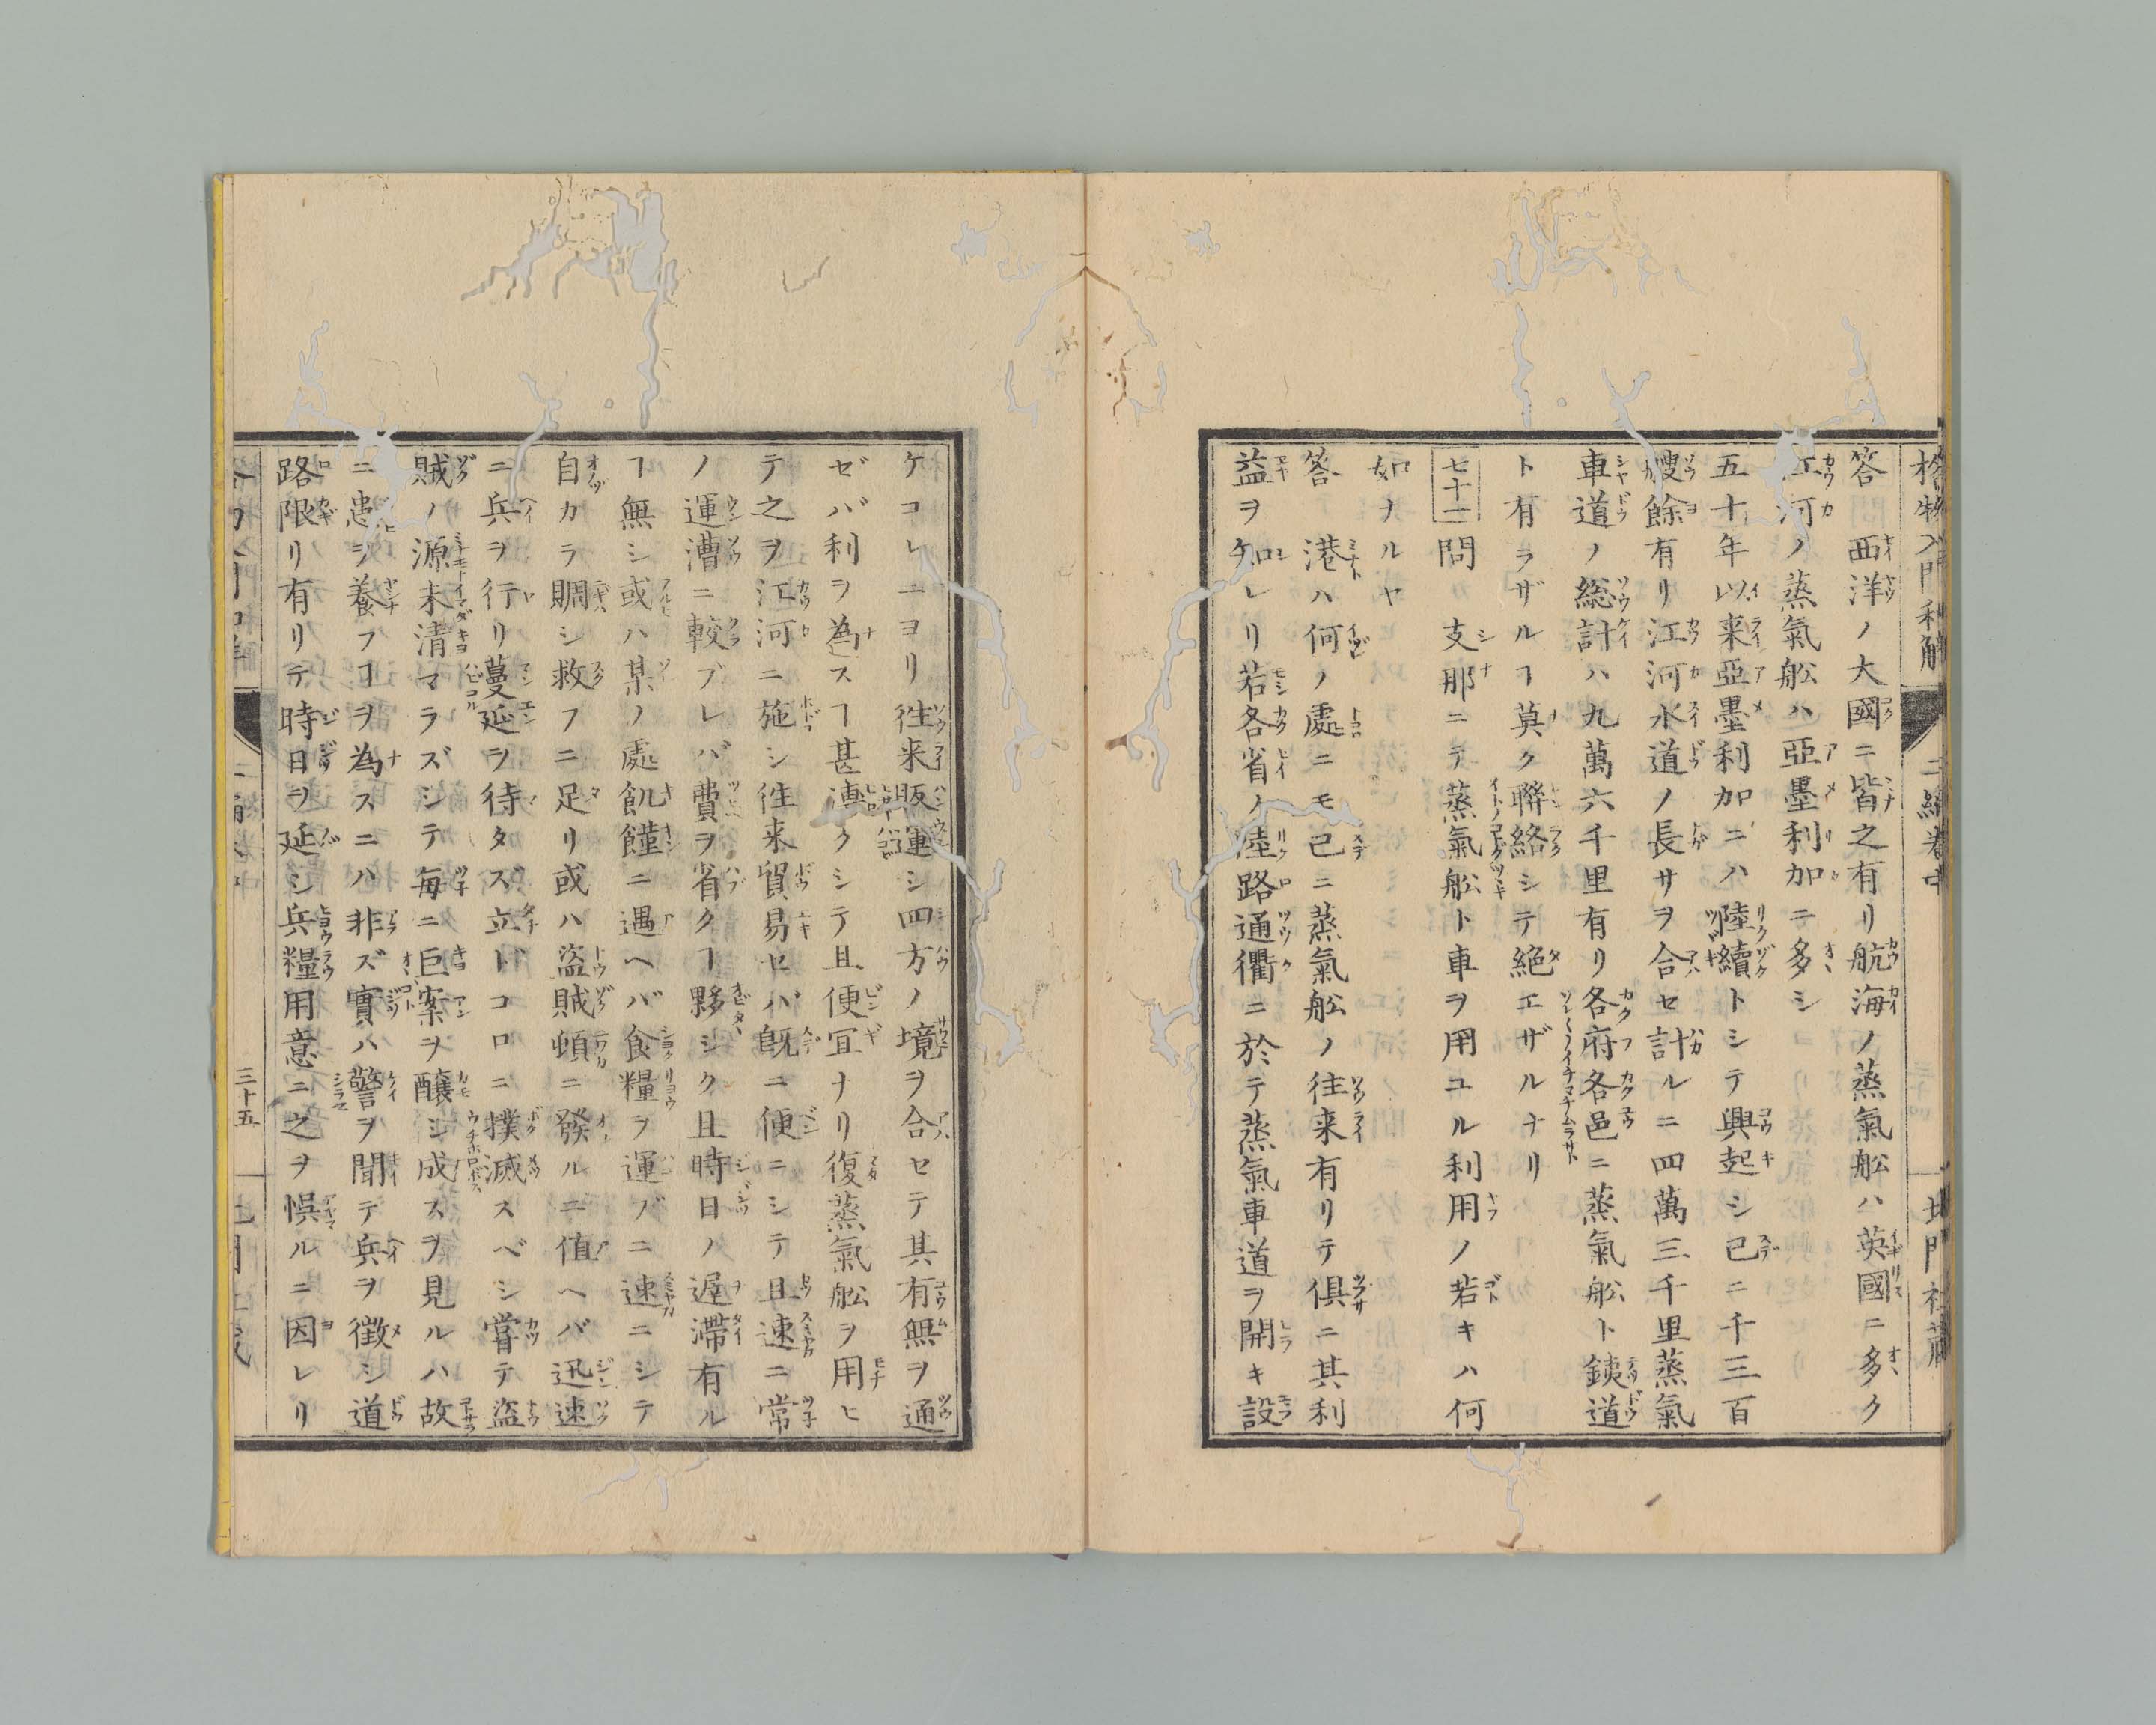 格物入門和解 二編巻中 北門社蔵
答 西洋ノ大國ニ皆之有リ航海ノ蒸氣舩ハ英國ニ多ク
江河ノ蒸氣舩ハ亞墨利加ニテ多シ
五十年以来亞墨利加ニハ陸續トシテ興起シ已ニ千三百
艘餘有リ江河水道ノ長サヲ合セ計ルニ四萬三千里蒸氣
車道ノ総計ハ九萬六千里有リ各府各邑ニ蒸氣舩ト銕道
ト有ラザルヿ莫ク聯絡シテ絶エザルナリ
七十一問 支那ニテ蒸氣舩ト車ヲ用ユル利用ノ若キハ何
如ナルヤ
答 港ハ何ノ處ニモ已ニ蒸氣舩ノ往来有リテ倶ニ其利
益ヲ知レリ若各省ノ陸路通衢ニ於テ蒸氣車道ヲ開キ設
ケコレニヨリ徃来販運シ四方ノ境ヲ合セテ其有無ヲ通
ゼバ利ヲ為スヿ甚溥クシテ且便宜ナリ復蒸氣舩ヲ用ヒ
テ之ヲ江河ニ施シ徃来貿易セバ既ニ便ニシテ且速ニ常
ノ運漕ニ較ブレバ費ヲ省クヿ夥シク且時日ノ遅滞有ル
ヿ無シ或ハ某ノ處飢饉ニ遇ヘバ食糧ヲ運ブニ速ニシテ
自カラ賙シ救フニ足リ或ハ盗賊頓ニ發ルニ値ヘバ迅速
ニ兵ヲ行リ蔓延ヲ待タズ立ドコロニ撲滅スベシ嘗テ盗
賊ノ源未清マラズシテ毎ニ巨案ヲ醸シ成スヲ見ルハ故
ニ患ヲ養フヿヲ為スニハ非ズ實ハ警ヲ聞テ兵ヲ徴シ道
路限リ有リテ時日ヲ延シ兵糧用意ニ之ヲ悞ルニ因レリ
三十五